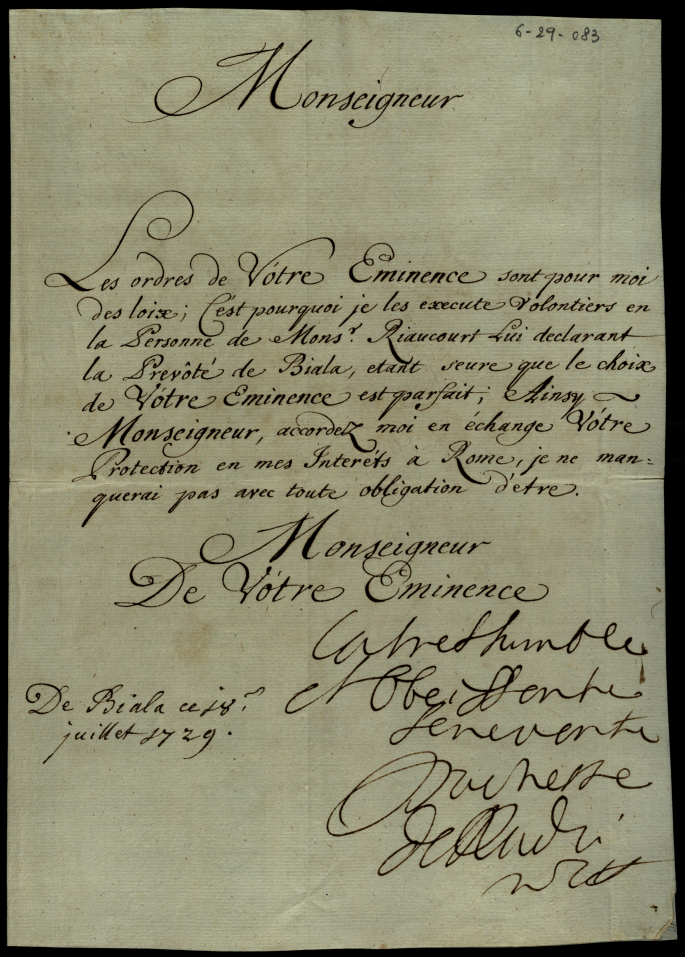 6-29-083
Monseigneur
Les ordres de Vótre Eminence sont pour moi
des loix; C'est pourquoi je les execute Volontiers en
la Personne de Monsr. Riaucourt Lui declarant
la Prevôté de Biala, etant seure que le choix
de Vótre Eminence est parfait; Ainsy
Monseigneur, accordez moi en échange Vótre
Protection en mes Interéts à Rome, je ne man=
querai pas avec toute obligation d'étre.
Monseigneur
De Vótre Eminence
la tres humble
et Obeissente
Servente
De Biala ce 18.
juillet 1729.
Duchesse